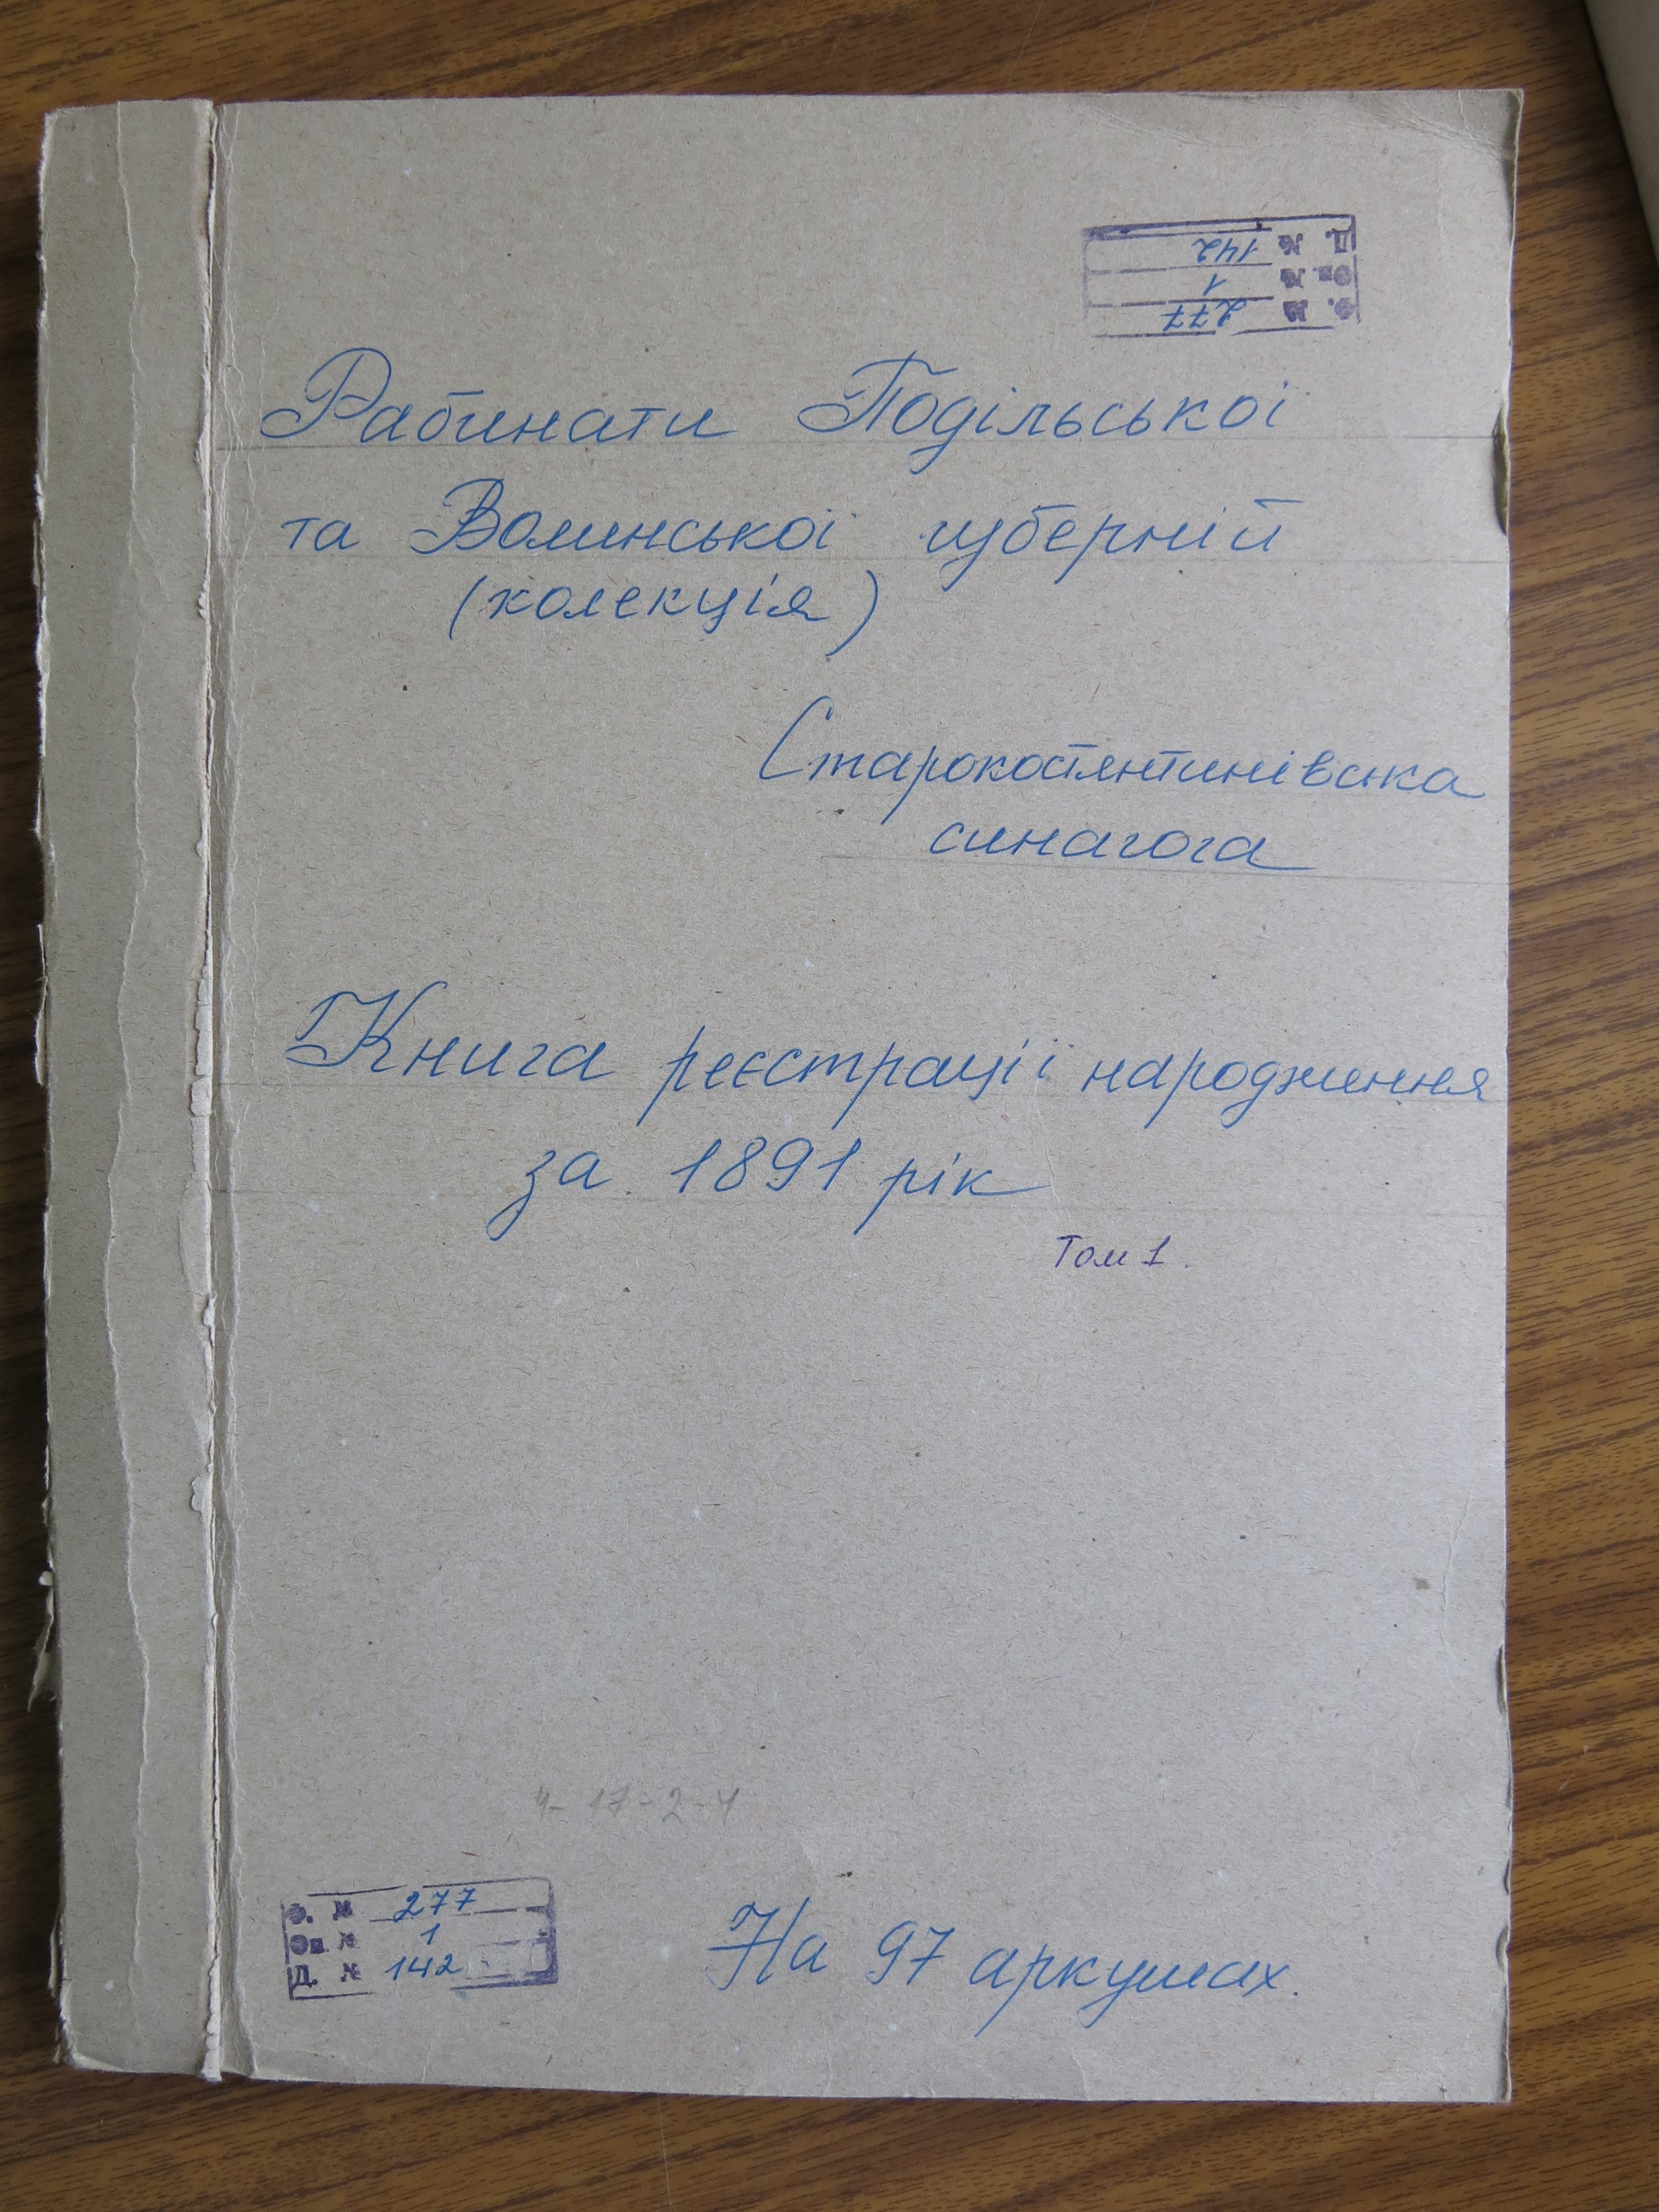 Д. № 142
Оп. № 1
Ф. № 277
Рабинати Подільської
та Волинської губерній
(колекція)
Старокостянтинівська
синагога
Книга реєстрації народження
за 1891 рік
Том 1.
4-17-2-4
Ф. № 277
Оп. № 1
Д. № 142
На 97 аркушах.